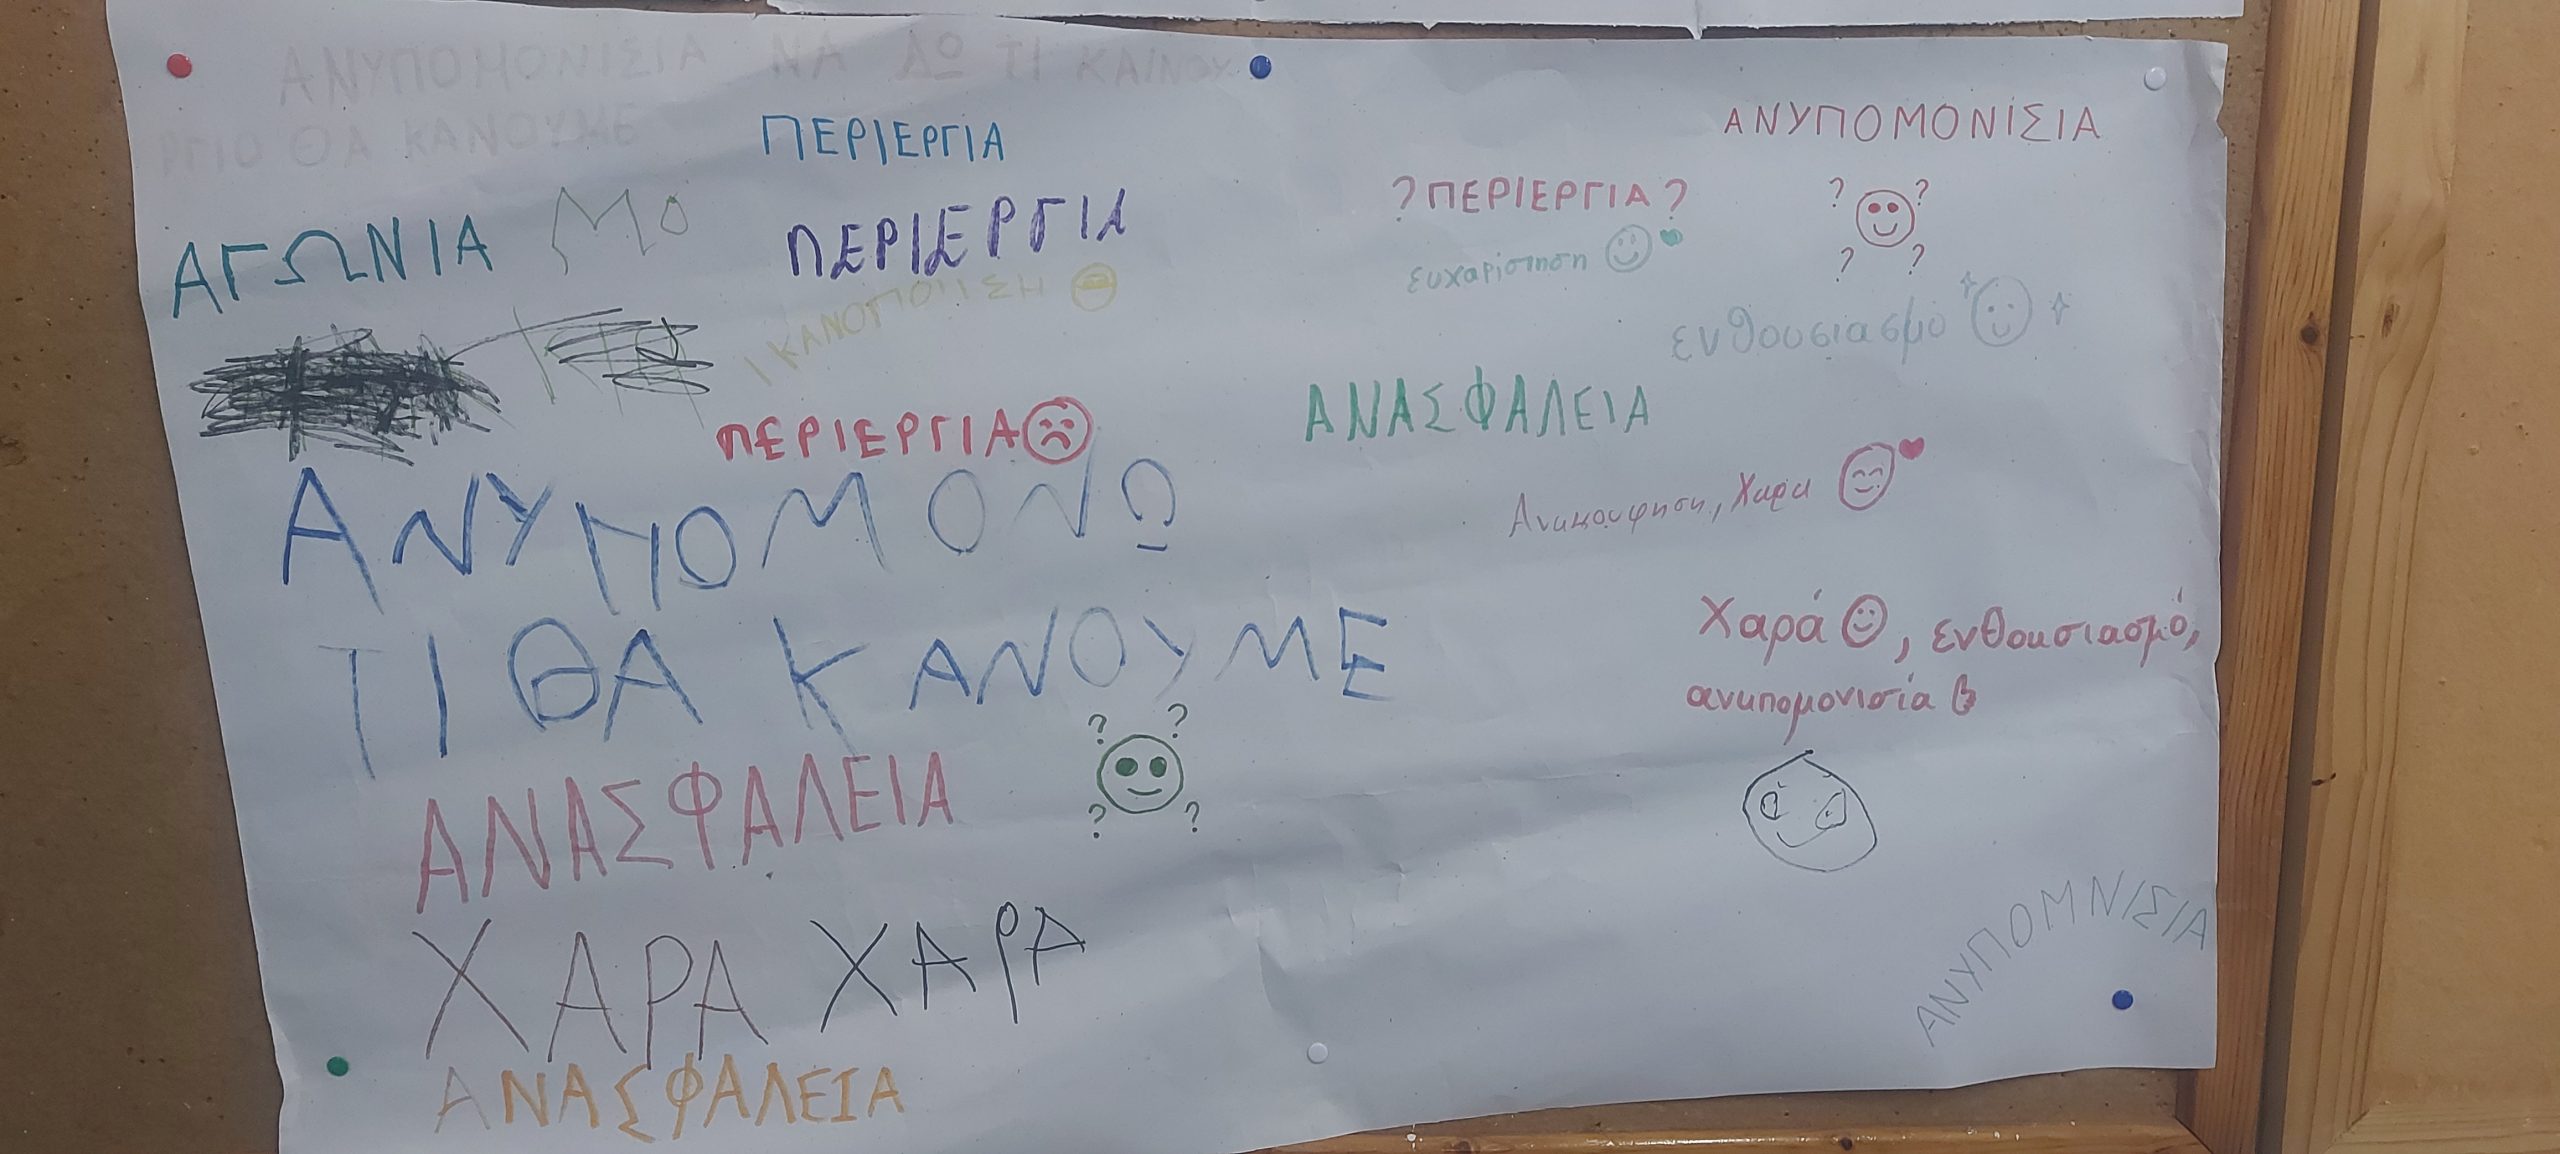 ΑΝΥΠΟΜΟΝΙΣΙΑ ΝΑ ΔΩ ΤΙ ΚΑΙΝΟΥ
ΡΓΙΟ ΘΑ ΚΑΝΟΥΜΕ
ΠΕΡΙΕΡΓΙΑ
ΑΓΩΝΙΑ
ΠΕΡΙΕΡΓΙΑ
ΙΚΑΝΟΠΟΙΙΣΗ
ΠΕΡΙΕΡΓΙΑ
ΑΝΥΠΟΜΟΝΩ
ΤΙ ΘΑ ΚΑΝΟΥΜΕ
? ? ? ?
ΑΝΑΣΦΑΛΕΙΑ
ΧΑΡΑ ΧΑΡΑ
ΑΝΑΣΦΑΛΕΙΑ
ΑΝΥΠΟΜΟΝΙΣΙΑ
?ΠΕΡΙΕΡΓΙΑ?
? ? ? ?
ευχαρίστηση
ενθουσιασμό
ΑΝΑΣΦΑΛΕΙΑ
Ανακουφηση, Χαρα
Χαρά, ενθουσιασμό,
ανυπομονισία
ΑΝΥΠΟΜΝΙΣΙΑ